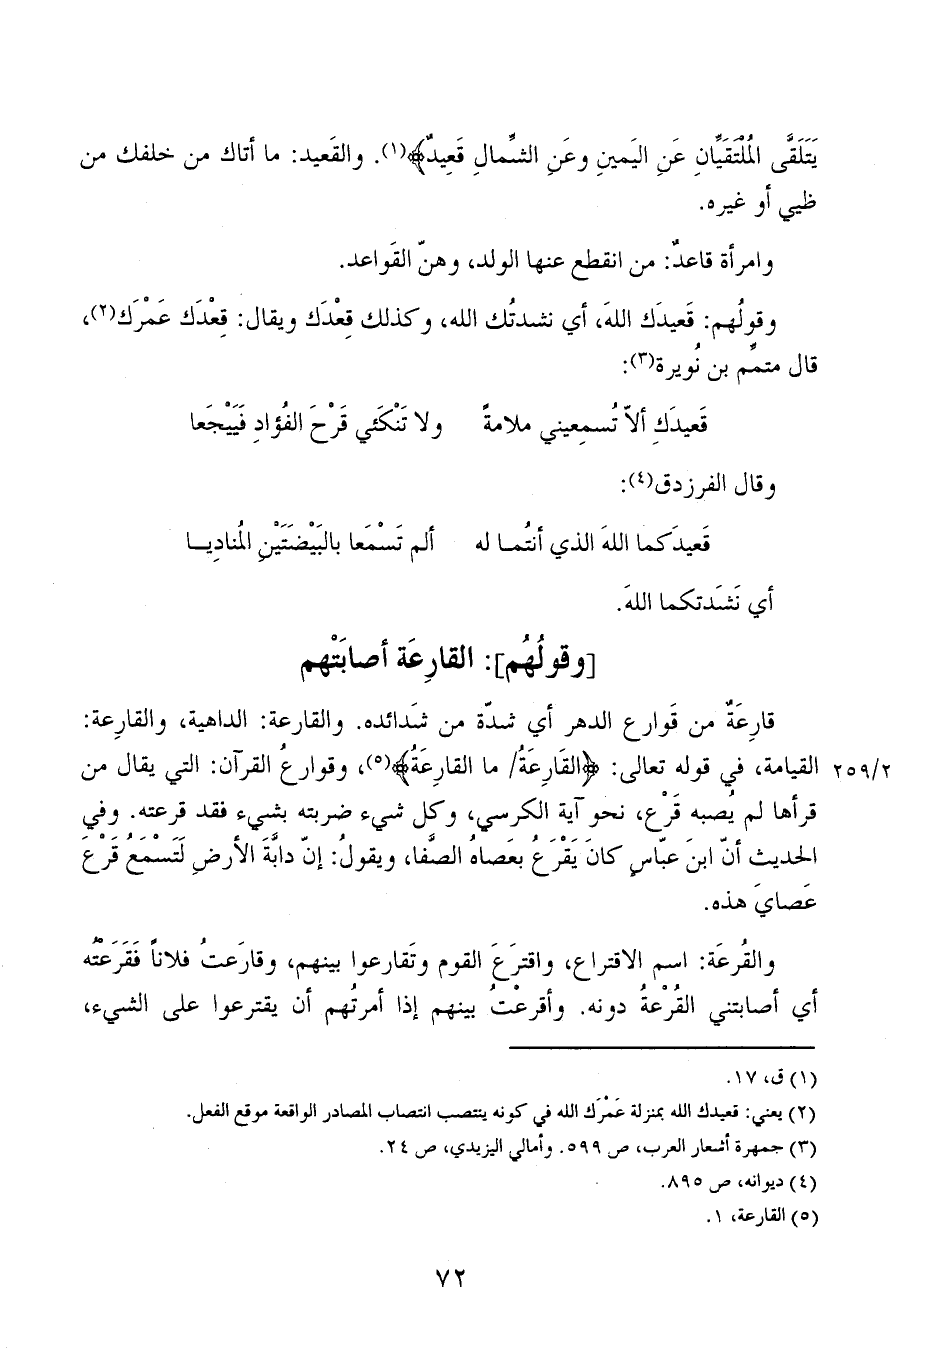 يَتَلَقَّى المُلْتَقَيَّانِ عَنِ اليَمينِ وعَنِ الشِّمالِ قَعِيدٌ﴾(١). والقَعيد: ما أتاك من خلفك من
ظبي أو غيره.
وامرأة قاعدٌ: من انقطع عنها الولد، وهنّ القَواعد.
وقولُهم: قَعيدَك اللهَ، أي نشدتُك الله، وكذلك قِعْدَك ويقال: قِعْدَك عَمْرَك(٢)،
قال متمِّم بن نُويرة(٣):
قَعيدَكِ ألاّ تُسمِعيني ملامةً ولا تَنْكَئي قَرْحَ الفُؤادِ فَيَيْجَعا
وقال الفرزدق(٤):
قَعيدَكما اللهَ الذي أنتُما له ألم تَسْمَعا بالبَيْضَتَيْنِ المُناديا
أي نَشَدتكما اللهَ.
[وقولُهُم]: القارِعَة أصابَتْهم
قارِعَةٌ من قَوارع الدهر أي شدّة من شَدائده. والقارعة: الداهية، والقارعة:
٢٥٩/٢ القيامة، في قوله تعالى: ﴿القَارِعَةُ/ ما القارِعَةُ﴾(٥)، وقوارعُ القرآن: التي يقال من
قرأها لم يُصبه قَرْع، نحو آية الكرسي، وكل شيء ضربته بشيء فقد قرعته. وفي
الحديث أنّ ابنَ عبّاسٍ كانَ يَقْرَعُ بعَصاهُ الصفَّا، ويقولُ: إنّ دابَّةَ الأرضِ لَتَسْمَعُ قَرْعَ
عَصايَ هذه.
والقُرعَة: اسم الاقتراع، واقترَعَ القوم وتَقارعوا بينهم، وقارَعتُ فلاناً فَقَرَعْتُه
أي أصابتني القُرْعةُ دونه. وأقرعْتُ بينهم إذا أمرتُهم أن يقترعوا على الشيء،
(١) ق، ١٧.
(٢) يعني: قعيدك الله بمنزلة عَمْرَك الله في كونه ينتصب انتصاب المصادر الواقعة موقع الفعل.
(٣) جمهرة أشعار العرب، ص ٥٩٩. وأمالي اليزيدي، ص ٢٤.
(٤) ديوانه، ص ٨٩٥.
(٥) القارعة، ١.
٧٢